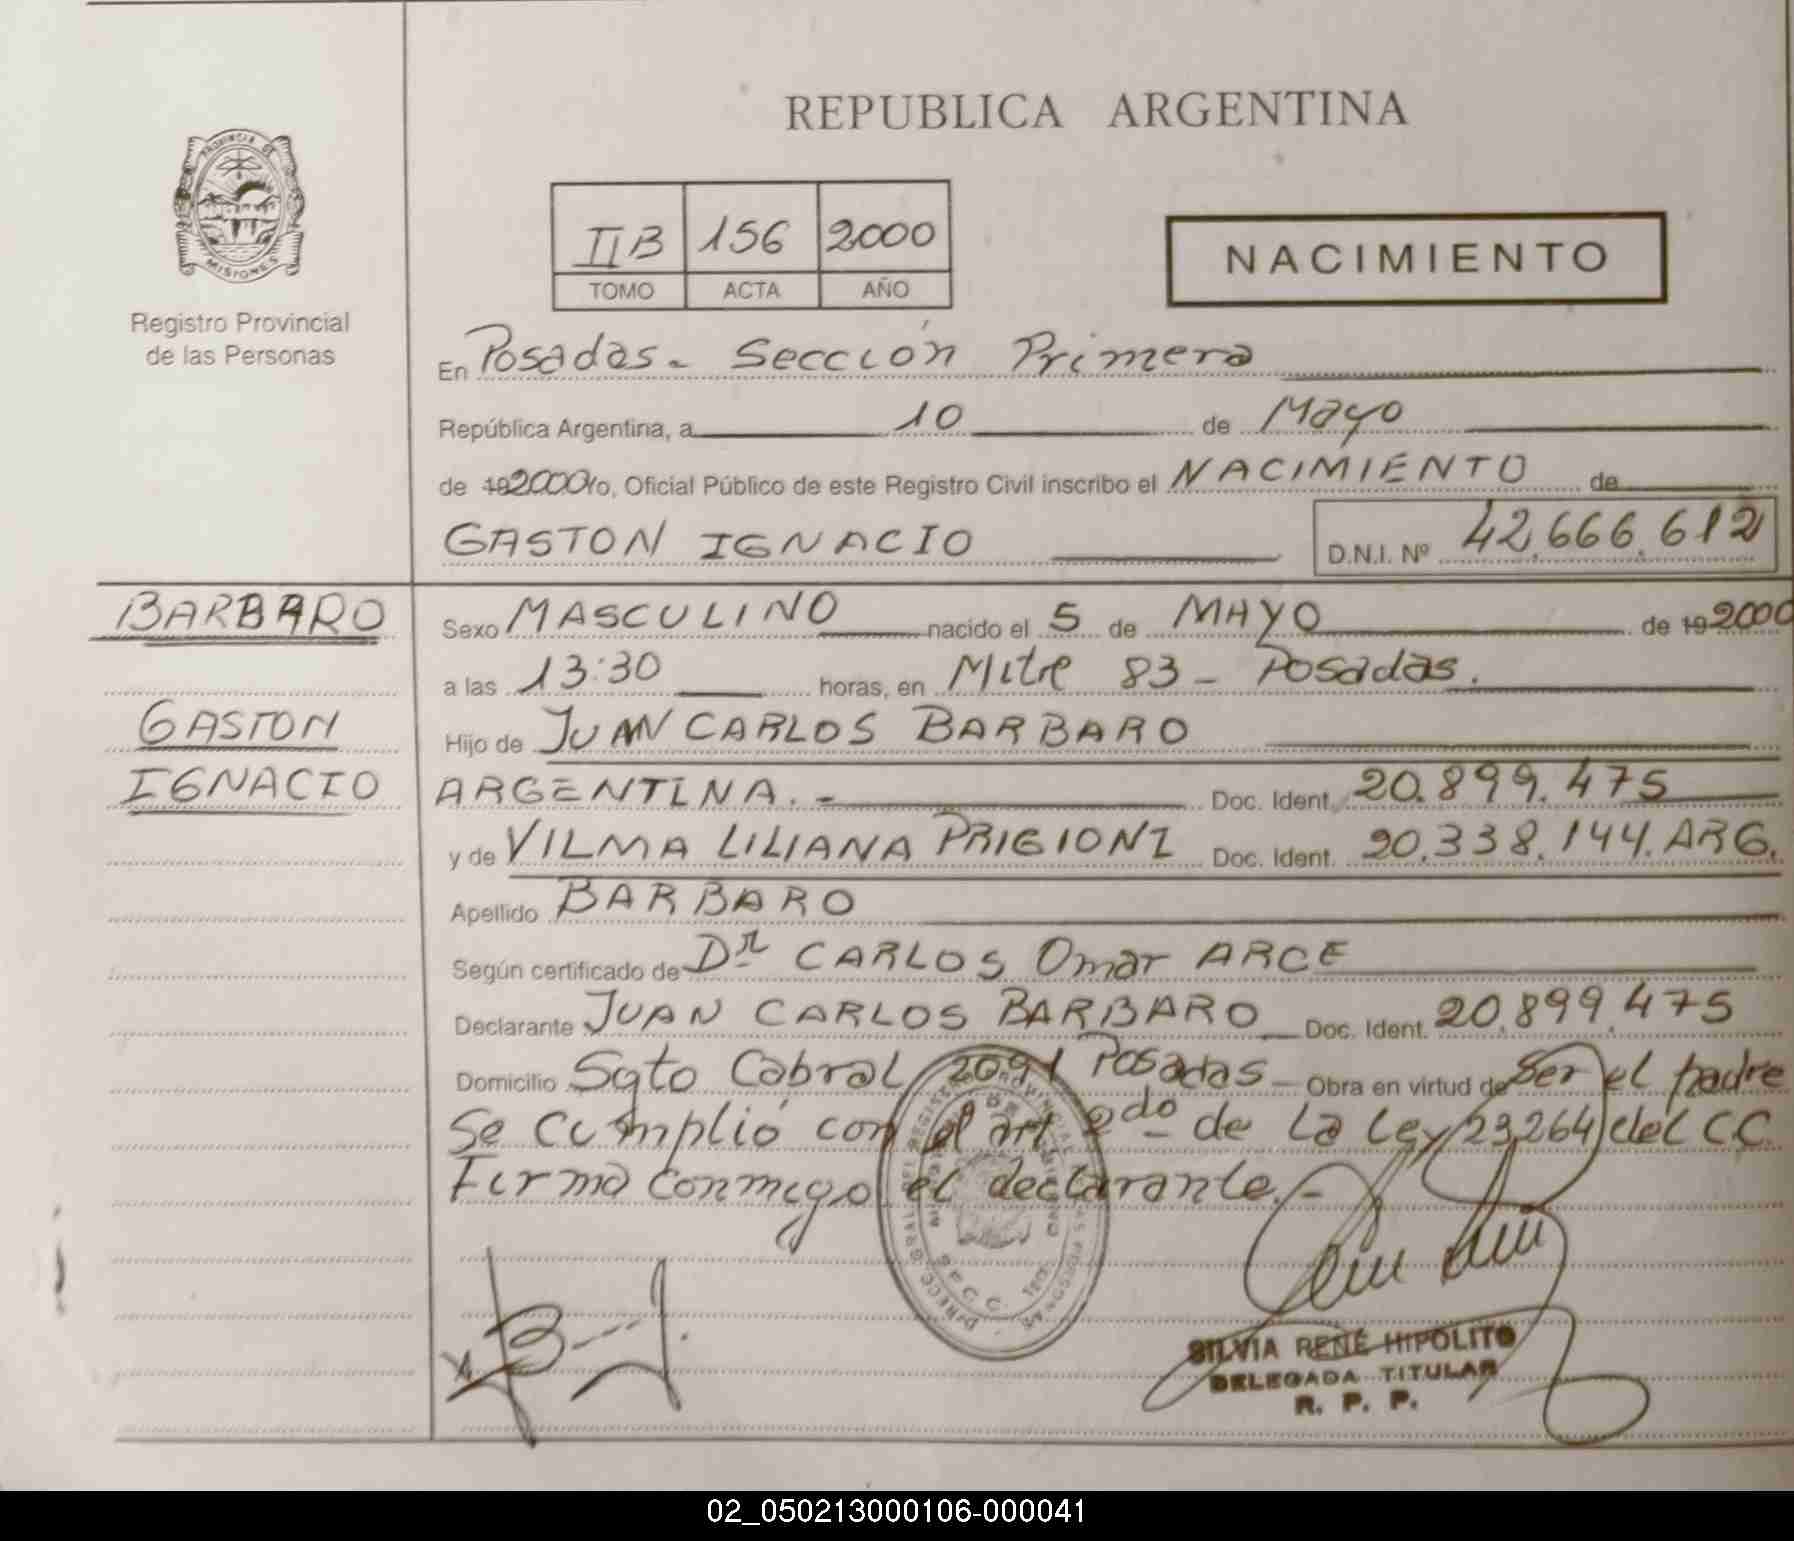 REPUBLICA ARGENTINA
PROVINCIA DE
MISIONES
Registro Provincial
de las Personas
IIB 156 2000
TOMO ACTA AÑO
NACIMIENTO
En Posadas - Sección Primera
República Argentina, a 10 de Mayo
de 192000 Yo, Oficial Público de este Registro Civil inscribo el NACIMIENTO de
GASTON IGNACIO D.N.I. Nº 42.666.612
BARBARO
GASTON
IGNACIO
Sexo MASCULINO nacido el 5 de MAYO de 192000
a las 13:30 horas, en Mitre 83 - Posadas.
Hijo de JUAN CARLOS BARBARO
ARGENTINA. - Doc. Ident. 20.899.475
y de VILMA LILIANA PRIGIONI Doc. Ident. 20.338.144. ARG.
Apellido BARBARO
Según certificado de Dr CARLOS Omar ARCE
Declarante JUAN CARLOS BARBARO Doc. Ident. 20.899.475
Domicilio Sgto Cabral 2091 Posadas - Obra en virtud de Ser el padre
Se cumplió con el art 2do de La Ley 23,264 del C.C.
Firma conmigo el declarante. -
SILVIA RENÉ HIPOLITO
DELEGADA TITULAR
R. P. P.
02_050213000106-000041